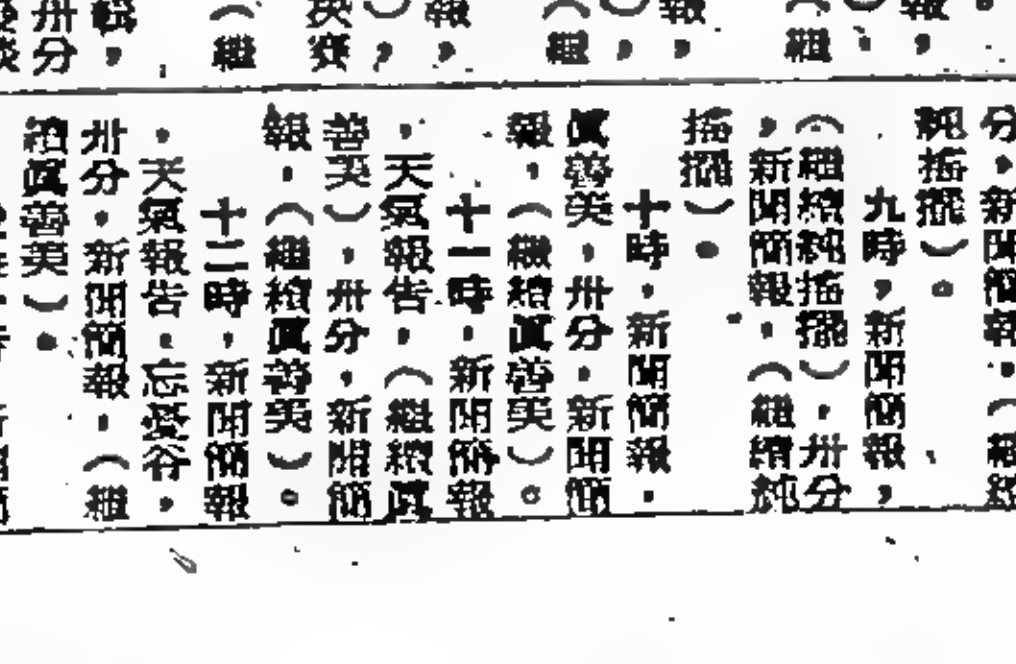 報，
（
報，
（繼
報，
）
決賽
（繼
卅分
分，新聞簡報，（繼續
純搖擺）。
九時，新聞簡報，
（繼續純搖擺），卅分
，新聞簡報，（繼續純
搖擺）。
十時，新聞簡報，
眞善美，卅分，新聞簡
報，（繼續眞善美）。
十一時，新聞簡報
，天氣報告，（繼續眞
善美），卅分，新聞簡
報，（繼續眞善美）。
十二時，新聞簡報
，天氣報告，忘憂谷，
卅分，新聞簡報，（繼
續眞善美）。